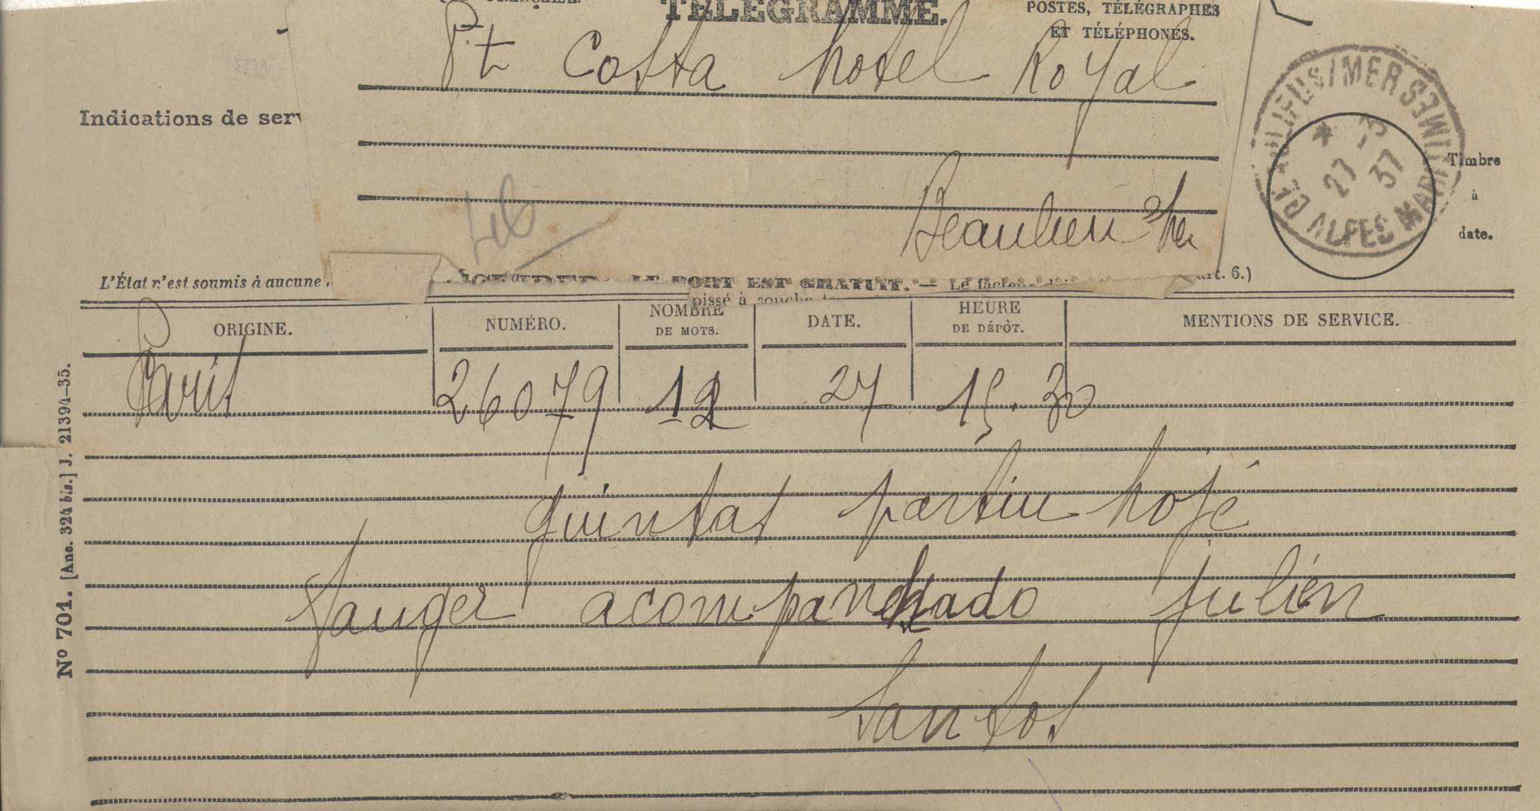 TÉLÉGRAMME.
POSTES, TÉLÉGRAPHES
ET TÉLÉPHONES.
Pt Costa hotel Royal
Indications de serv
Beaulieu s/ mer
BEAULIEU S/MER 27 -3 37 ALPES MARITIMES
Timbre
à
date.
L'État n'est soumis à aucune
LE PORT EST GRATUIT. — Le facteur
rt. 6.)
pissé à souche
ORIGINE. NUMÉRO. NOMBRE DE MOTS. DATE. HEURE DE DÉPÔT. MENTIONS DE SERVICE.
Paris 26079 12 27 15.30
quintas partiu hojé
Tanger acompanhado julién
Santos
N° 701. [Anc. 324 bis.] J. 21394-35.